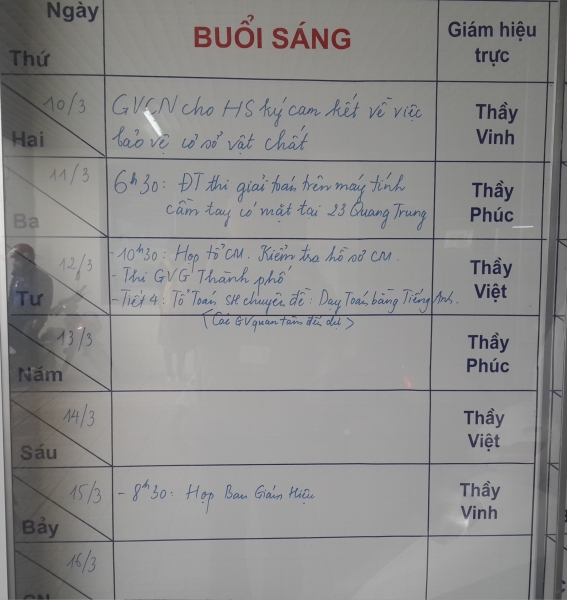 Ngày
Thứ
BUỔI SÁNG
Giám hiệu
trực
10/3
Hai
GVCN cho HS ký cam kết về việc
bảo vệ cơ sở vật chất
Thầy
Vinh
11/3
Ba
6h30: ĐT thi giải toán trên máy tính
cầm tay có mặt tại 23 Quang Trung
Thầy
Phúc
12/3
Tư
- 10h30: Họp tổ CM. Kiểm tra hồ sơ CM.
- Thi GVG Thành phố
- Tiết 4: Tổ Toán SH chuyên đề: Dạy Toán bằng Tiếng Anh.
(Các GV quan tâm đến dự)
Thầy
Việt
13/3
Năm
Thầy
Phúc
14/3
Sáu
Thầy
Việt
15/3
Bảy
- 8h30: Họp Ban Giám Hiệu
Thầy
Vinh
16/3
CN